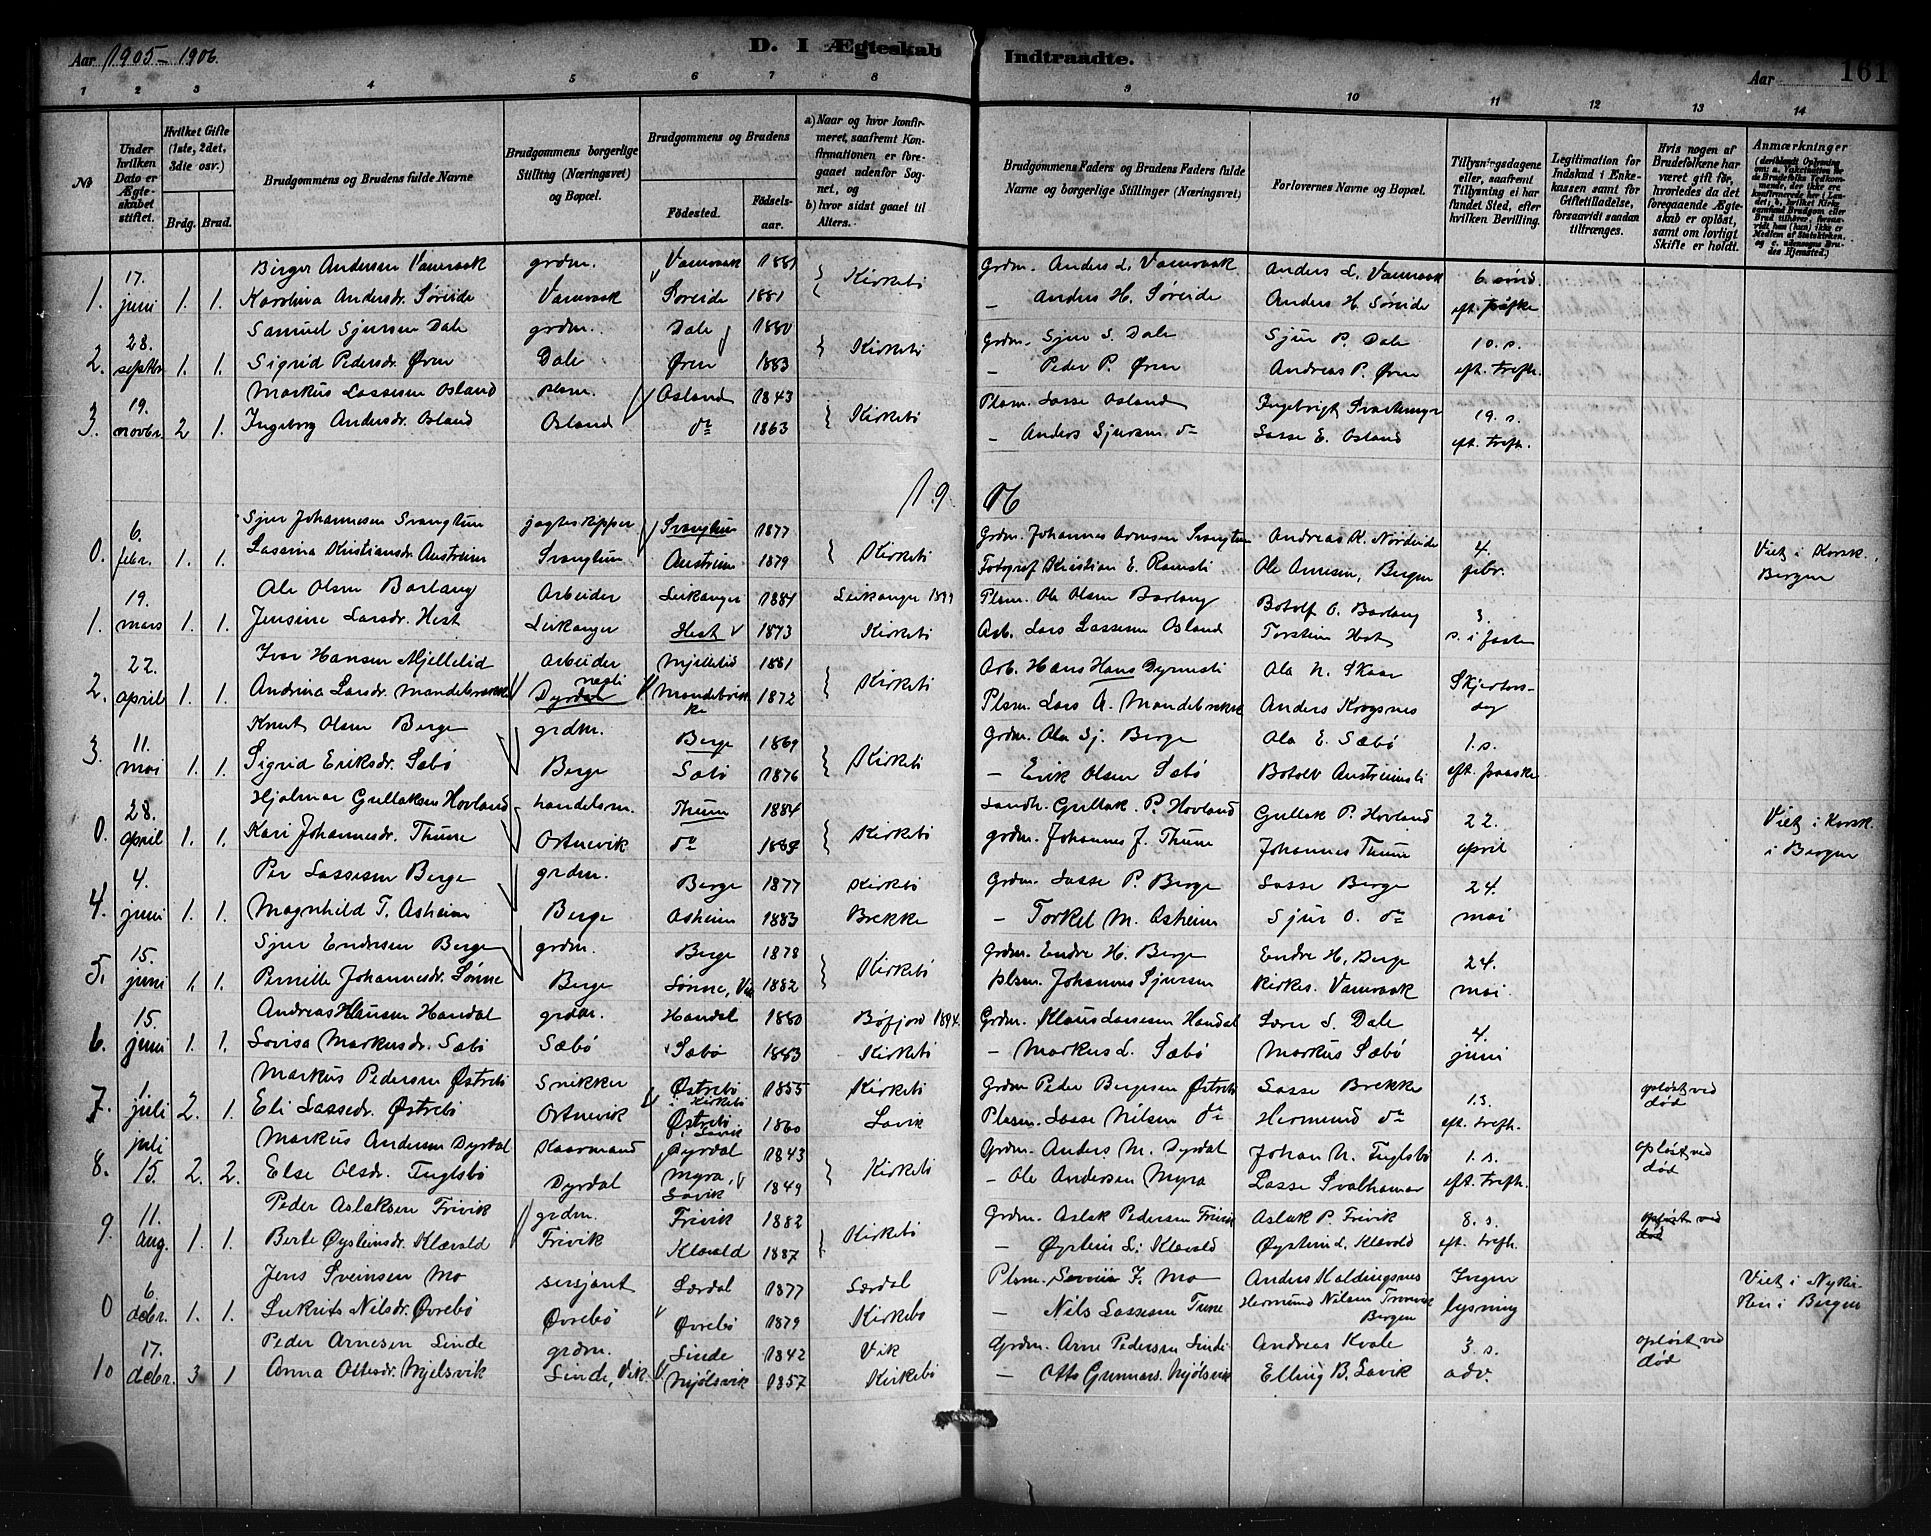 Aar 1905 – 1906.
D. I Ægteskab Indtraadte.
Aar
161
1 2 3 4 5 6 7 8 9 10 11 12 13 14
No
Under hvilken Dato er Ægteskabet stiftet.
Hvilket Gifte (1ste, 2det, 3die osv.)
Brdg. Brud.
Brudgommens og Brudens fulde Navne
Brudgommens borgerlige Stilling (Næringsvei) og Bopæl.
Brudgommens og Brudens
Fødested. Fødselsaar.
a) Naar og hvor konfirmeret, saafremt Konfirmationen er foregaaet udenfor Sognet, og
b) hvor sidst gaaet til Alters.
Brudgommens Faders og Brudens Faders fulde Navne og borgerlige Stillinger (Næringsvei)
Forlovernes Navne og Bopæl.
Tillysningsdagene eller, saafremt Tillysning ei har fundet Sted, efter hvilken Bevilling.
Legitimation for Indskud i Enkekassen samt for Giftetilladelse, forsaavidt saadan tiltrænges.
Hvis nogen af Brudefolkene har været gift før, hvorledes da det foregaaende Ægteskab er opløst, samt om lovligt Skifte er holdt.
Anmærkninger
17. Birger Andersen Vamraak grdm. Vamraak 1881 Kirkebø Grdm. Anders L. Vamraak Anders L. Vamraak 6 sønd.
1. juni 1. 1. Karolina Andersdr. Søreide Vamraak Søreide 1881 – Anders H. Søreide Anders H. Søreide eft. påske
28. Samuel Sjursen Dale grdm. Dale 1880 Kirkebø Grdm. Sjur S. Dale Sjur P. Dale 10. s.
2. septbr. 1. 1. Sigrid Pedersdr. Øren Dale Øren 1883 – Peder P. Øren Andreas P. Øren eft. trefh.
19. Markus Lassesen Osland plsm. Osland 1843 Kirkebø Plsm. Lasse Osland Ingebrigt Svartemyr 19. s.
3. novbr. 2 1. Ingeborg Andersdr. Osland Osland do 1863 – Anders Sjursen do Lasse E. Osland eft. trefh.
19 06
6. Sjur Johannesen Svangtun jagteskipper Svangtun 1877 Kirkebø Grdm. Johannes Arnesen Svangtun Andreas K. Nordeide 4.
0. febr. 1. 1. Lassina Kristiansdr. Austreim Svangtun Austreim 1879 Fotograf Kristian E. Ramsli Ole Annesen, Bergen febr. Viet i Korsk. Bergen
19. Ole Olsen Barlaug Arbeider Leikanger 1884 Leikanger 1899 Plsm. Ole Olsen Barlaug Botolf O. Barlaug 3.
1. mars 1. 1. Jensine Larsdr. Hest Leikanger Hest 1873 Kirkebø Arb. Lars Lassesen Osland Torstein Hest s. i faste
22. Ivar Hansen Mjellelid Arbeider Mjellelid 1881 Kirkebø Arb. Hans Hans Dyrnesli Ola N. Skaar Skjertorsdag
2. april 1. 1. Andrina Larsdr. Mandelsbrekke Dyrdal Mandebrekke 1872 Plsm. Lars A. Mandebrekke Anders Krogsnes
11. Knut Olsen Berge grdm. Berge 1869 Kirkebø Grdm. Ola Sj. Berge Ola E. Sæbø 1. s.
3. mai 1. 1. Sigrid Eriksdr. Sæbø Berge Sæbø 1876 – Erik Olsen Sæbø Botolv Austreimsli eft. paaske
28. Hjalmar Gullaksen Hovland handelsm. Thune 1884 Kirkebø Landh. Gullak P. Hovland Gullak P. Hovland 22. Viet i Korsk.
0. april 1. 1. Kari Johannesdr. Thune Ortnevik do 1884 grdm. Johannes J. Thune Johannes Thune april i Bergen
4. Per Lassesen Berge grdm. Berge 1877 Kirkebø Grdm. Lasse P. Berge Lasse Berge 24.
4. juni 1. 1. Magnhild T. Asheim Berge Asheim 1883 Brekke – Torkel M. Asheim Sjur O. do mai
15. Sjur Endresen Berge grdm. Berge 1878 Kirkebø Grdm. Endre H. Berge Endre H. Berge 24.
5. juni 1. 1. Pernille Johannesdr. Sønne Berge Sønne, Vik 1882 plsm. Johannes Sjursen kirkes. Vamraak mai
15. Andreas Klausen Handal grdm. Handal 1880 Bøfjord 1894. Grdm. Klaus Larsesen Handal Lars S. Dale 4.
6. juni 1. 1. Lovisa Markusdr. Sæbø Sæbø Sæbø 1883 Kirkebø – Markus L. Sæbø Markus Sæbø juni
1. Markus Pedersen Østrebø Snikker Østrebø i Kirkebø 1855 Kirkebø Grdm Peder Børgesen Østrebø Lasse Brekke 1. s. opløst ved
7. juli 2. 1. Eli Lassedr. Østrebø Ortnevik Østrebø i Lavik 1860 Lavik Plsm. Lasse Nilsen do Hermund do eft. trefh. død
juli Markus Andersen Dyrdal Kaarmand Dyrdal 1843 Kirkebø Grdm. Anders M. Dyrdal Johan N. Fuglsbø 1. s. opløst ved
8. 15. 2. 2. Else Olsdr. Fuglsbø Dyrdal Myra, Lavik 1849 – Ole Andersen Myra Lasse Svalhamar eft. trefh. død
11. Peder Aslaksen Frivik grdm. Frivik 1882 Kirkebø Grdm. Aslak Pedersen Frivik Aslak P. Frivik 8. s. opløst ved
9. aug. 1. 1. Berte Øysteinsdr. Klævold Frivik Klævold 1887 – Øystein L. Klævold Øystein L. Klævold eft. trefh. død
6. Jens Sveinsen Mo sersjant Lærdal 1877 Lærdal Plsm. J. Mo Anders Haldingsnes Ingen Viet i Nykirken i Bergen
0 decbr. 1. 1. Nilsdr. Øvrebø Øvrebø Øvrebø 1879 Kirkebø – Nils Lassesen Tune Hermund Nilsen Bergen lysning
17. Peder Arnesen Linde grdm. Linde 1842 Vik Grdm. Arne Pedersen Linde Andreas Kvale 3. s. opløst ved
10 decbr. 3 1 Anna Ottesdr. Njelsvik Linde, Vik. Njølsvik 1857 Kirkebø – Otto Gunnars. Njølsvik Elling B. Lavik adv. død